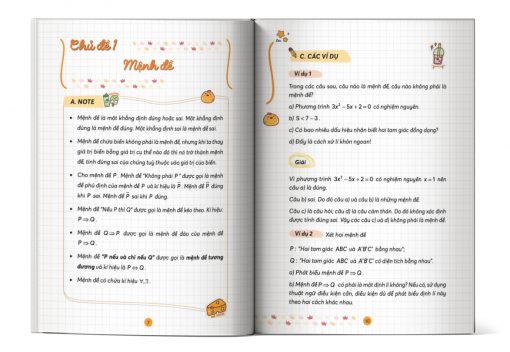 Chủ đề 1
Mệnh đề
A. NOTE
• Mệnh đề là một khẳng định đúng hoặc sai. Một khẳng định
đúng là mệnh đề đúng. Một khẳng định sai là mệnh đề sai.
• Mệnh đề chứa biến không phải là mệnh đề, nhưng khi ta thay
giá trị biến bằng giá trị cụ thể nào đó thì nó trở thành mệnh
đề, tính đúng sai của chúng tuỳ thuộc vào giá trị của biến.
• Cho mệnh đề P. Mệnh đề "Không phải P" được gọi là mệnh
đề phủ định của mệnh đề P và kí hiệu là P̅. Mệnh đề P̅ đúng
khi P sai. Mệnh đề P̅ sai khi P đúng.
• Mệnh đề "Nếu P thì Q" được gọi là mệnh đề kéo theo. Kí hiệu:
P ⇒ Q.
• Mệnh đề Q ⇒ P được gọi là mệnh đề đảo của mệnh đề
P ⇒ Q.
• Mệnh đề "P nếu và chỉ nếu Q" được gọi là mệnh đề tương
đương và kí hiệu là P ⇔ Q.
• Mệnh đề có chứa kí hiệu ∀, ∃.
7
C. CÁC VÍ DỤ
Ví dụ 1
Trong các câu sau, câu nào là mệnh đề, câu nào không phải là
mệnh đề?
a) Phương trình 3x² − 5x + 2 = 0 có nghiệm nguyên.
b) 5 < 7 − 3.
c) Có bao nhiêu dấu hiệu nhận biết hai tam giác đồng dạng?
d) Đấy là cách xử lí khôn ngoan!
Giải
Vì phương trình 3x² − 5x + 2 = 0 có nghiệm nguyên x = 1 nên
câu a) là đúng.
Câu b) sai. Do đó câu a) và câu b) là những mệnh đề.
Câu c) là câu hỏi; câu d) là câu cảm thán. Do đó không xác định
được tính đúng sai. Vậy các câu c) và d) không phải là mệnh đề.
Ví dụ 2 Xét hai mệnh đề
P: "Hai tam giác ABC và A'B'C' bằng nhau";
Q: "Hai tam giác ABC và A'B'C' có diện tích bằng nhau".
a) Phát biểu mệnh đề P ⇒ Q.
b) Mệnh đề P ⇒ Q có phải là một định lí không? Nếu có, sử dụng
thuật ngữ điều kiện cần, điều kiện đủ để phát biểu định lí này
theo hai cách khác nhau.
10